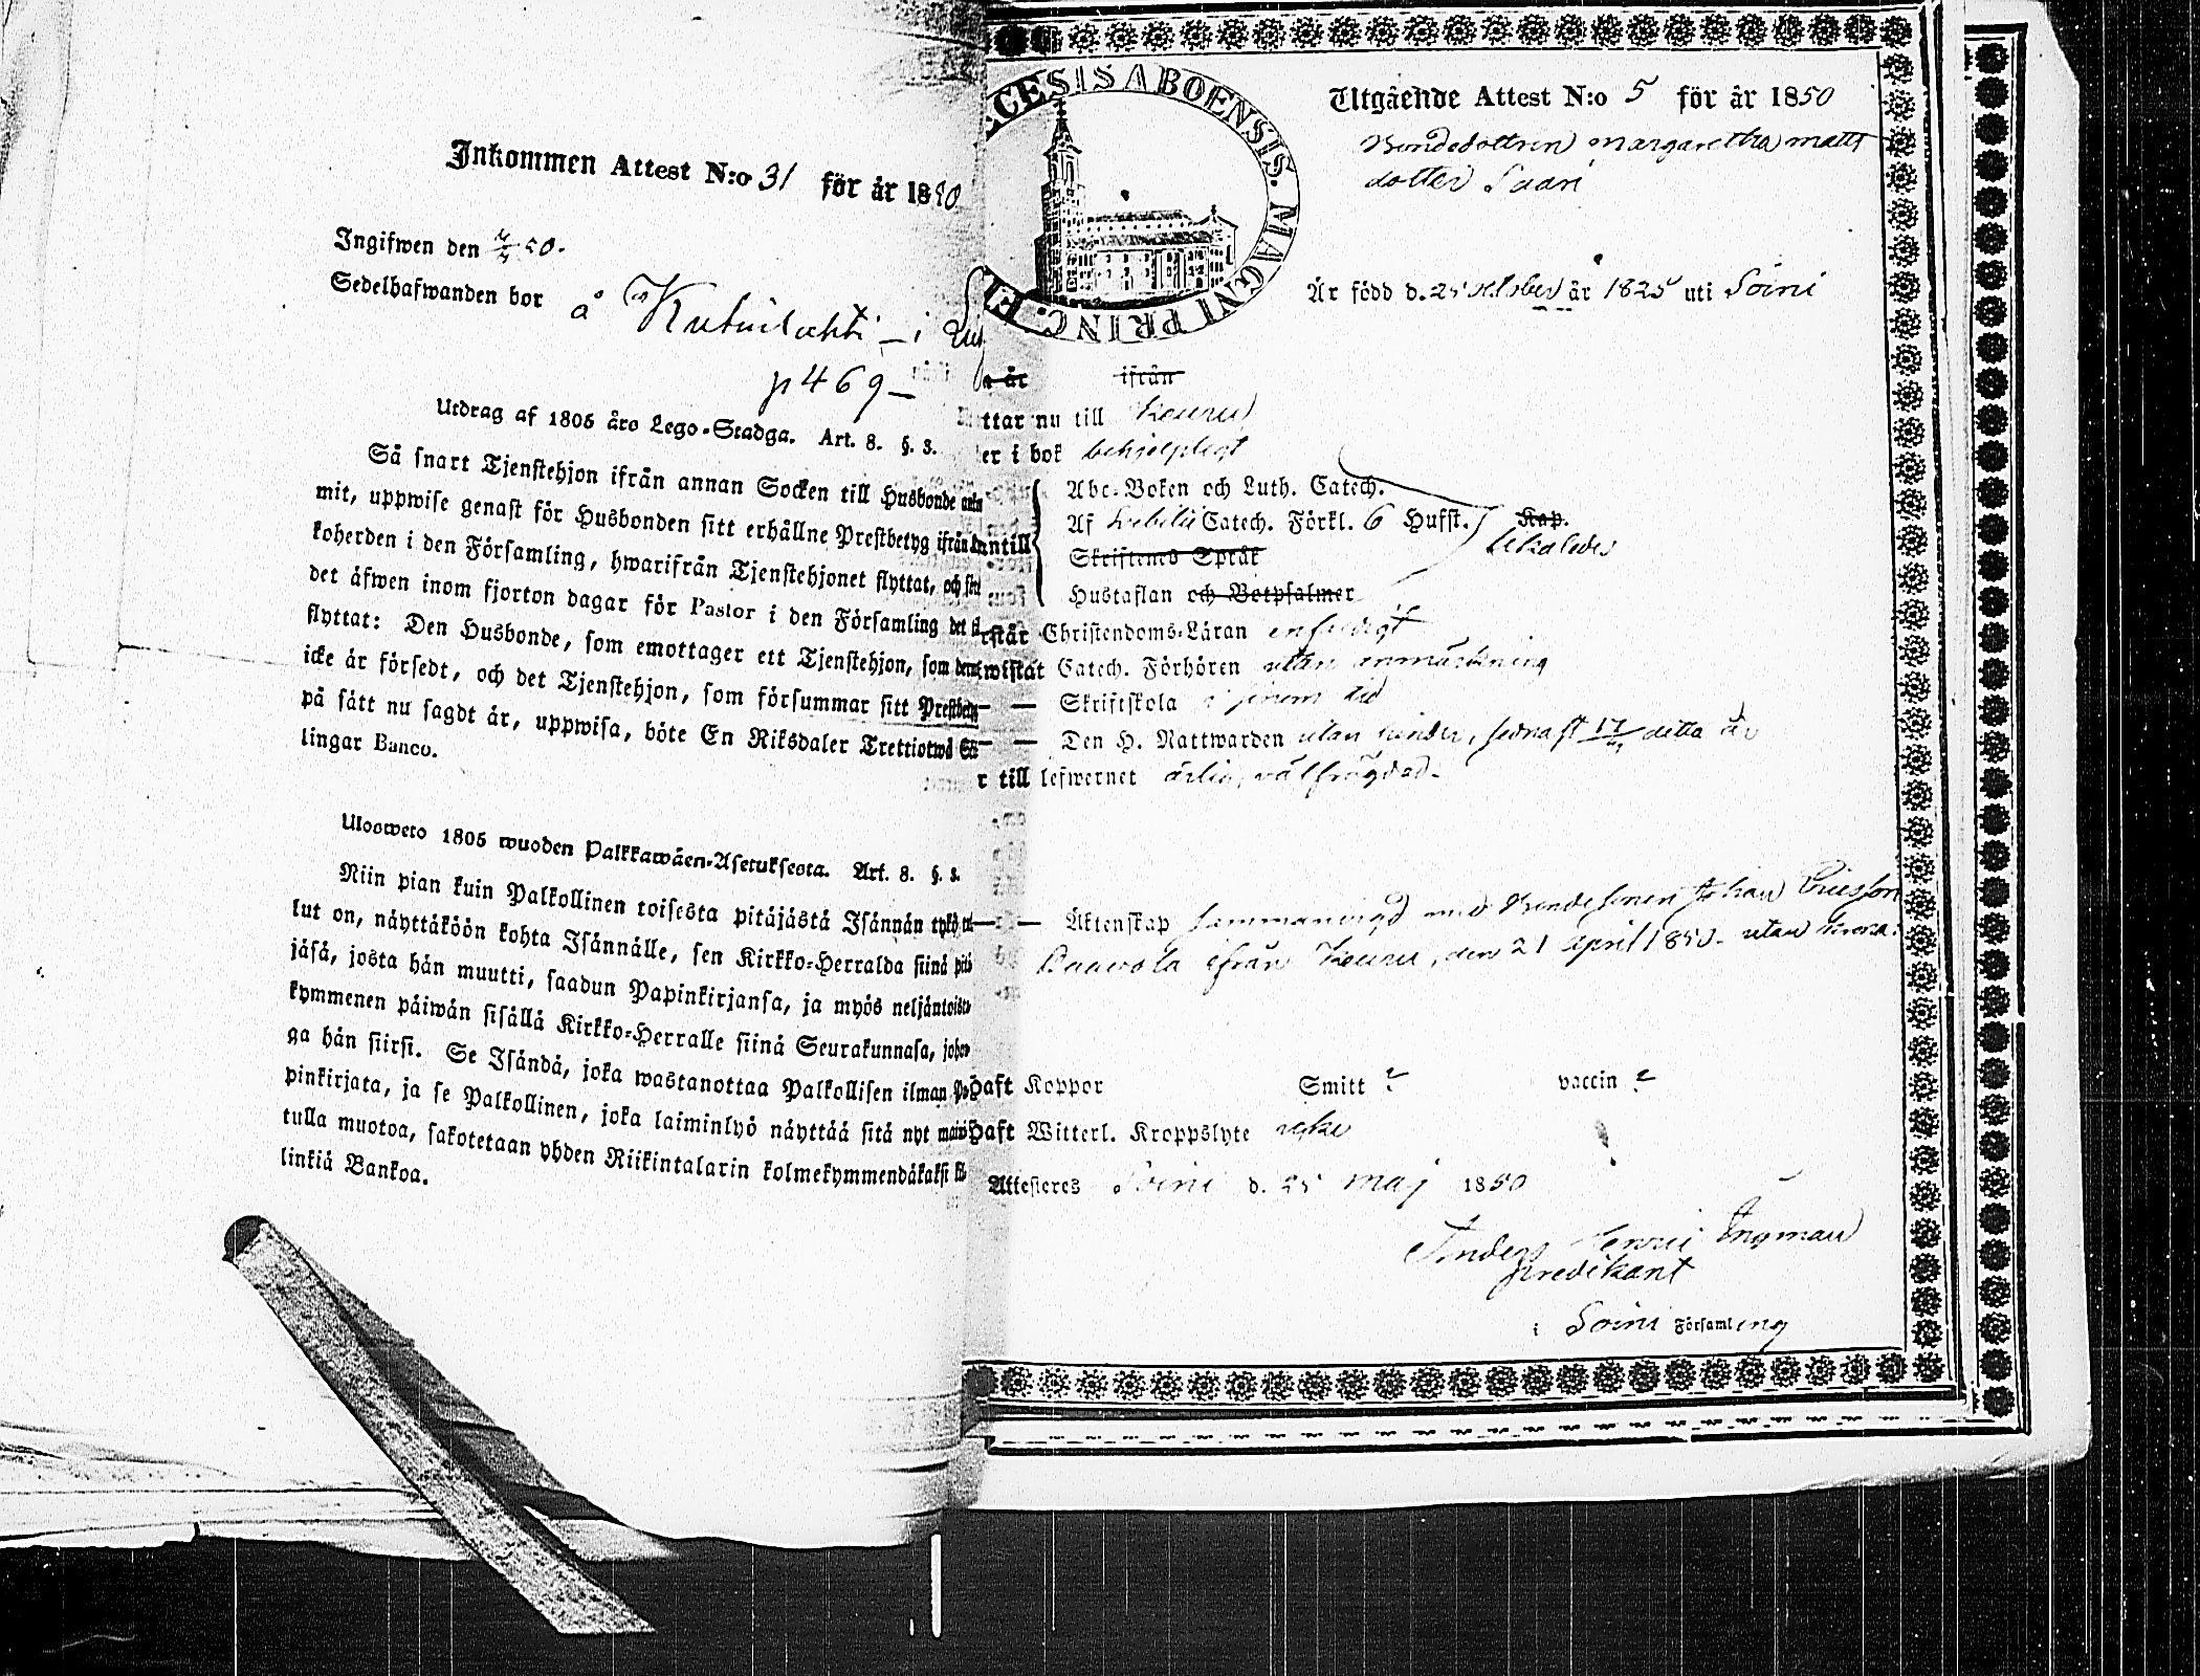 Inkommen Attest N:o 31 för år 1850
Ingifwen den 50.
Sedelhafwanden bor å i
p 469
Utdrag af 1805 års Lego-Stadga. Art. 8. §. 3.
Så snart Tjenstehjon ifrån annan Socken till Husbonde
mit, uppwise genast för Husbonden sitt erhållne Prestbetyg ifrån
koherden i den Församling, hwarifrån Tjenstehjonet flyttat, och
det äfwen inom fjorton dagar för Pastor i den Församling det
flyttat: Den Husbonde, som emottager ett Tjenstehjon, som
icke är försedt, och det Tjenstehjon, som försummar sitt Prestbetyg
på sätt nu sagdt är, uppwisa, böte En Riksdaler Trettiotwå
lingar Banco.
Ulosweto 1805 wuoden Palkkawäen-Asetuksesta. Art. 8. §. 3.
Niin pian kuin Palkollinen toisesta pitäjästä Isännän tykö
lut on, näyttäköön kohta Isännälle, sen Kirkko-Herralda siinä
jäsä, josta hän muutti, saadun Papinkirjansa, ja myös neljäntoista
kymmenen päiwän sisällä Kirkko-Herralle siinä Seurakunnasa,
ga hän siirsi. Se Isändä, joka wastanottaa Palkollisen ilman
pinkirjata, ja se Palkollinen, joka laiminlyö näyttää sitä nyt
tulla muotoa, sakotetaan yhden Riikintalarin kolmekymmendäkaksi
linkiä Bankoa.
CESIS ABOENSIS. MAGNI PRINC.
Utgående Attest N:o 5 för år 1850
Bondedottren Margaretha Matts
dotter Saari
Är född d. 25 october år 1825 uti Soini
är ifrån
ttar nu till Keuru
er i bok behjelpligt
Abc-Boken och Luth. Catech.
Af Catech. Förkl. 6 Hufst. Kap.
antill
Skriftenes Språk
Hustaflan och Botpsalmer
rstår Christendoms-Läran enfaldigt
wistat Catech. Förhören utan anmärkning
— — Skriftskola i sinom tid
— — Den H. Nattwarden utan hinder, sednast detta år
r till lefwernet ärlig, välfrägdad.
— — Äktenskap sammanvigd med Bondesonen Johan Ericsson
Paavola ifrån Keuru, den 21 April 1850. utan
haft Koppor Smitt ? vaccin ?
haft Witterl. Kroppslyte icke
Attesteres Soini d. 25 Maj 1850
Anders Henric Ingman
predikant
i Soini Församling